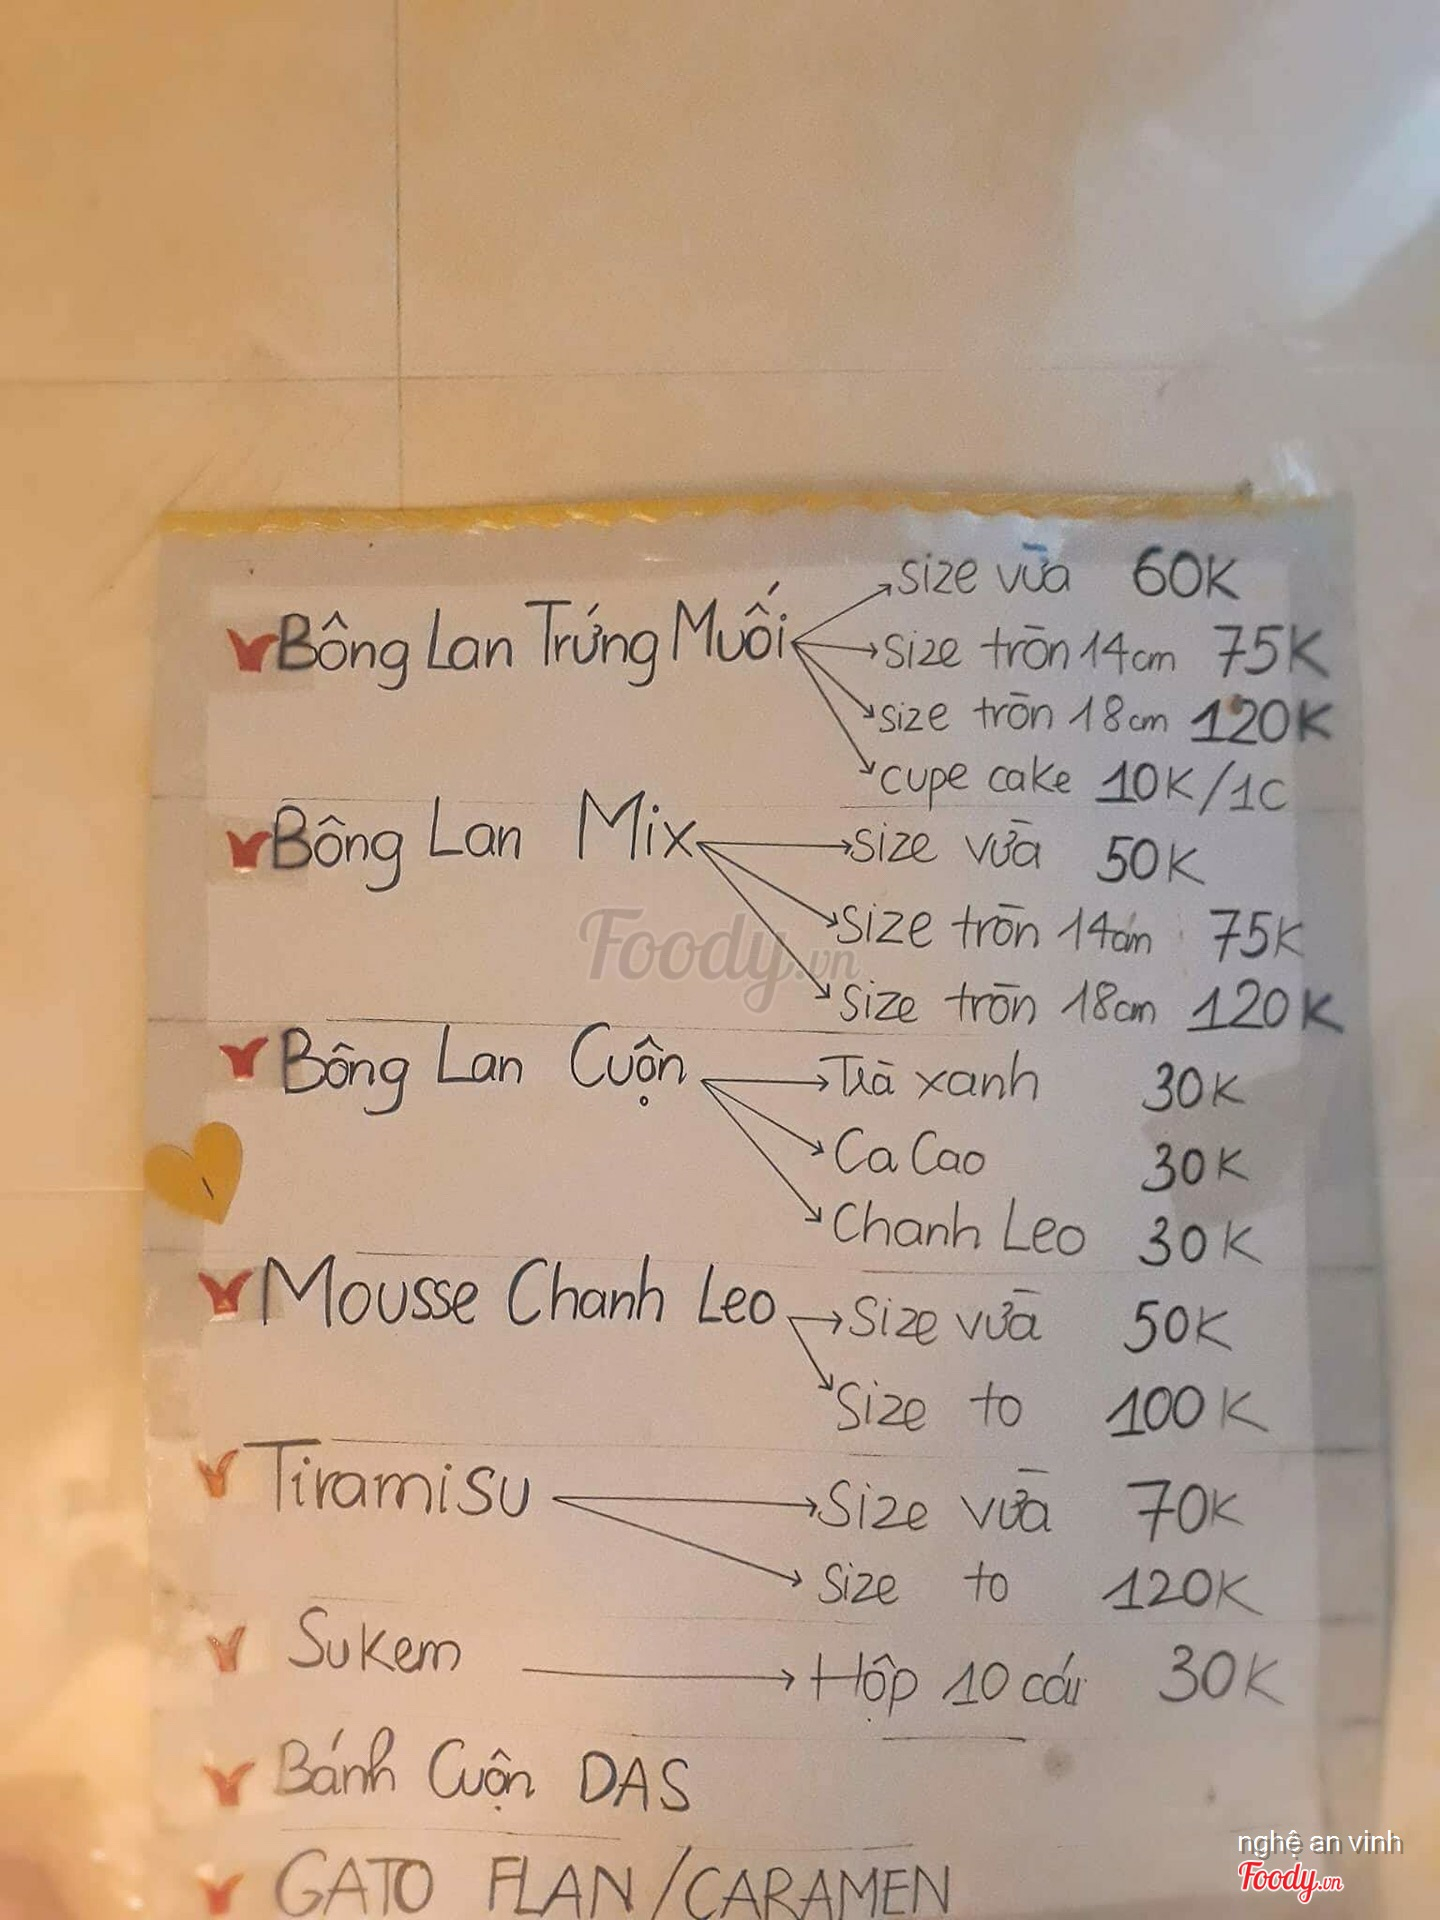 Size vừa 60K
Bông Lan Trứng Muối
Size tròn 14cm 75K
Size tròn 18cm 120K
Cupe cake 10K/1C
Bông Lan Mix
Size vừa 50K
Size tròn 14cm 75K
Foody.vn
Size tròn 18cm 120K
Bông Lan Cuộn
Trà xanh 30K
Ca Cao 30K
Chanh Leo 30K
Mousse Chanh Leo
Size vừa 50K
Size to 100K
Tiramisu
Size vừa 70K
Size to 120K
Sukem
Hộp 10 cái 30K
Bánh Cuộn DAS
nghệ an vinh
Foody.vn
GATO FLAN/CARAMEN